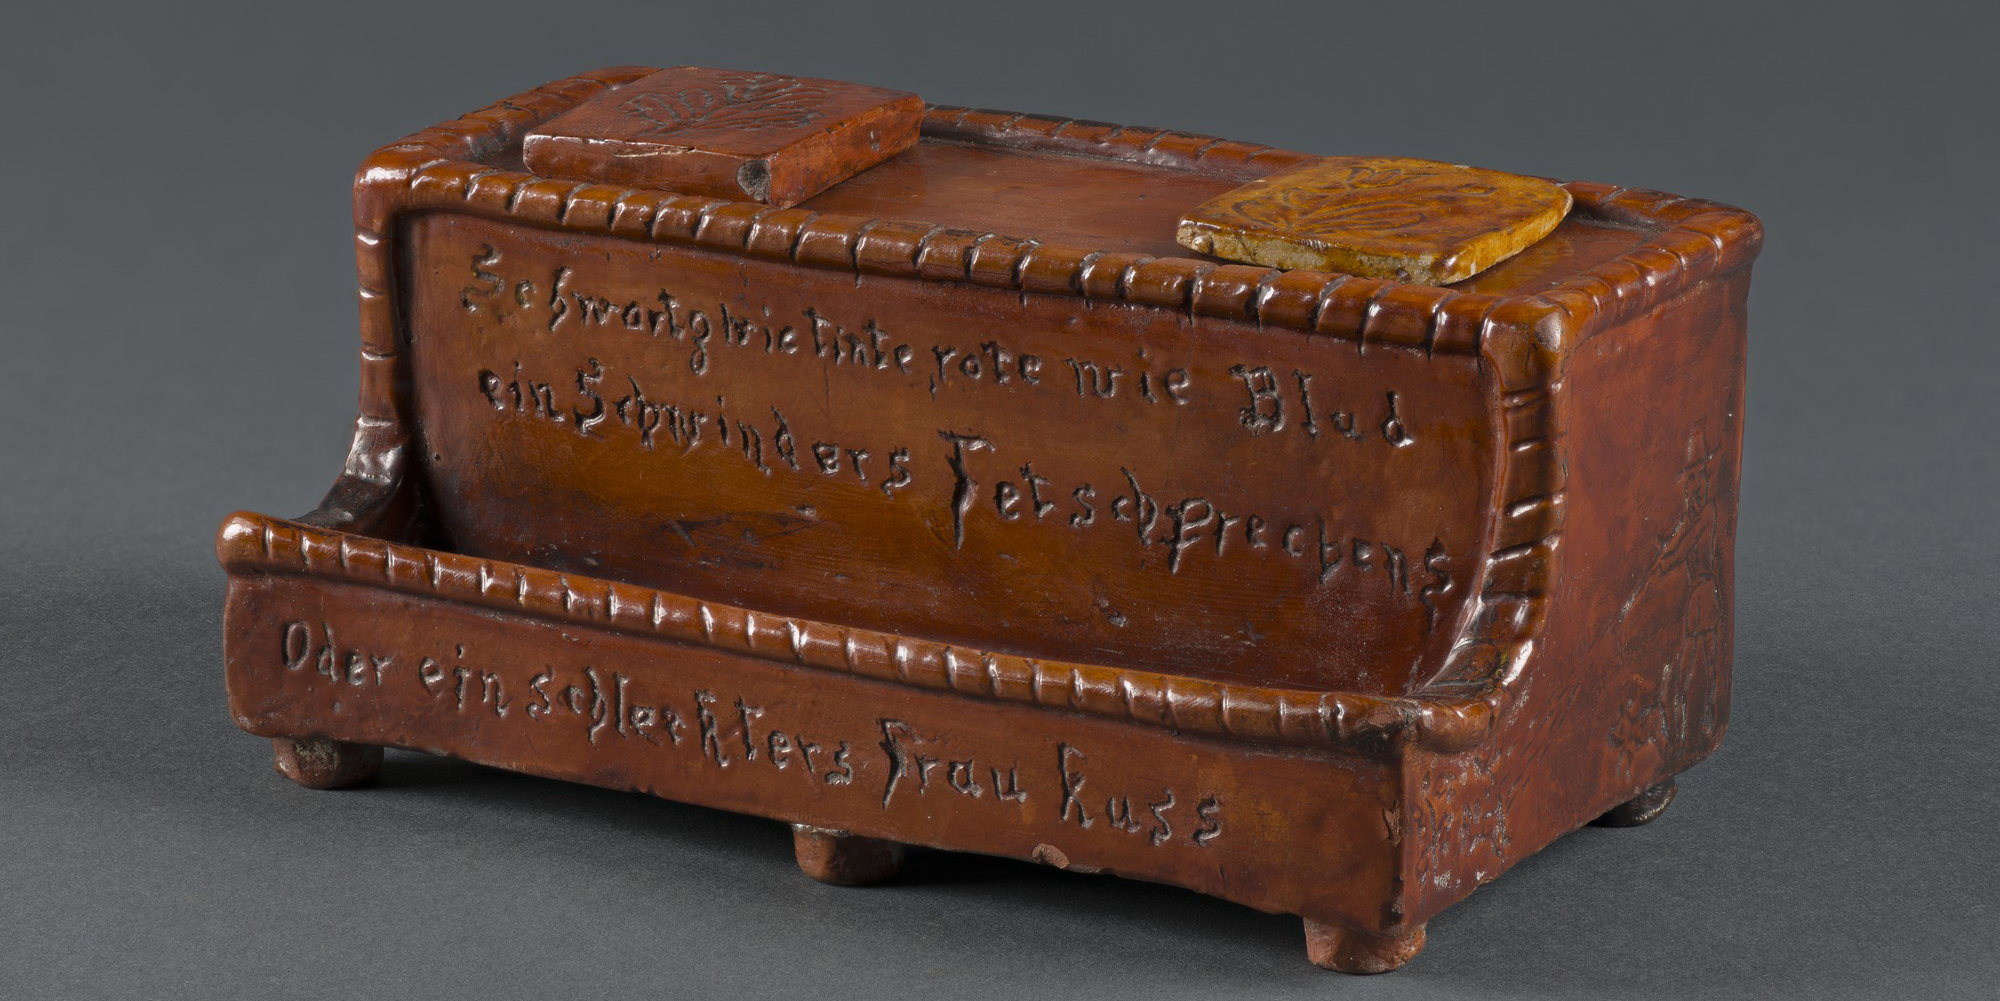 Schwartz wie tinte rote wie Blud
ein Schwinders Fetschprechens
Oder ein schlechkters frau kuss